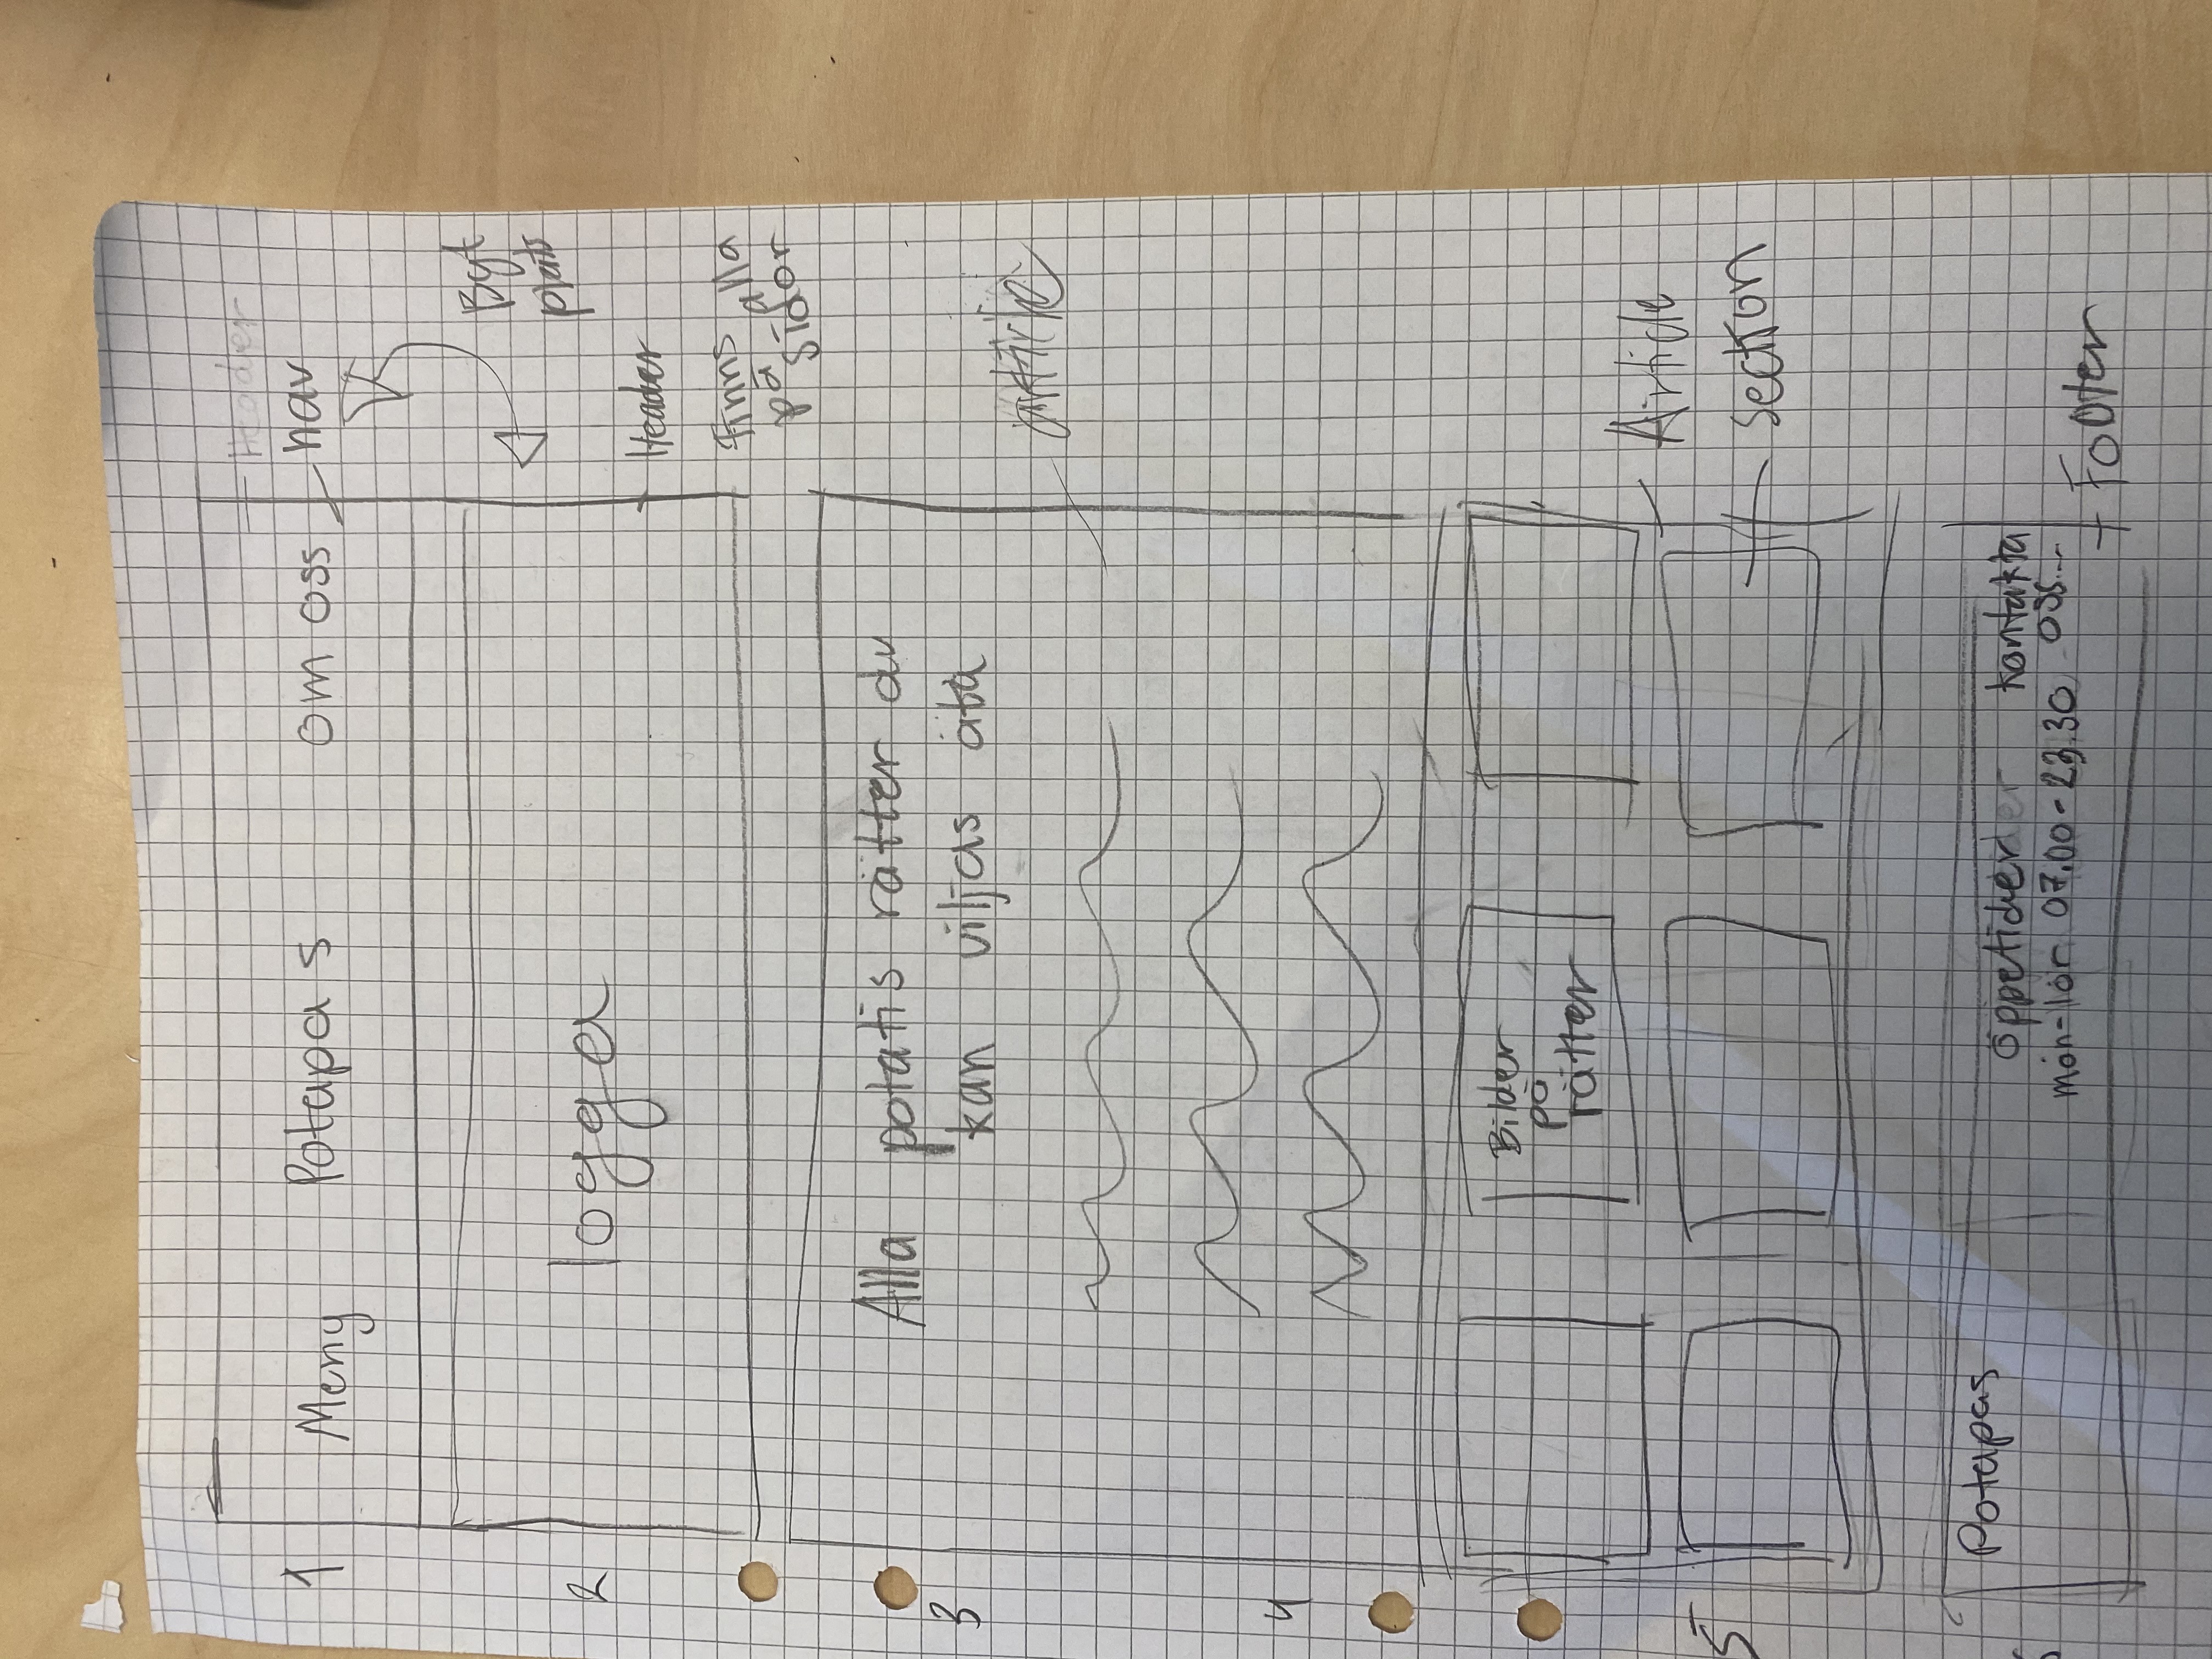 Header
1 Meny Potapas om oss nav
Byt
plats
2 logga
Header
Finns
på alla
sidor
Alla potatis rätter du
3 kan viljas äta
article
4
Bilder
på
rätter
Article
5 section
Potapas
öppetider kontakta
mån-lör 07.00-23.30 oss...
Footer